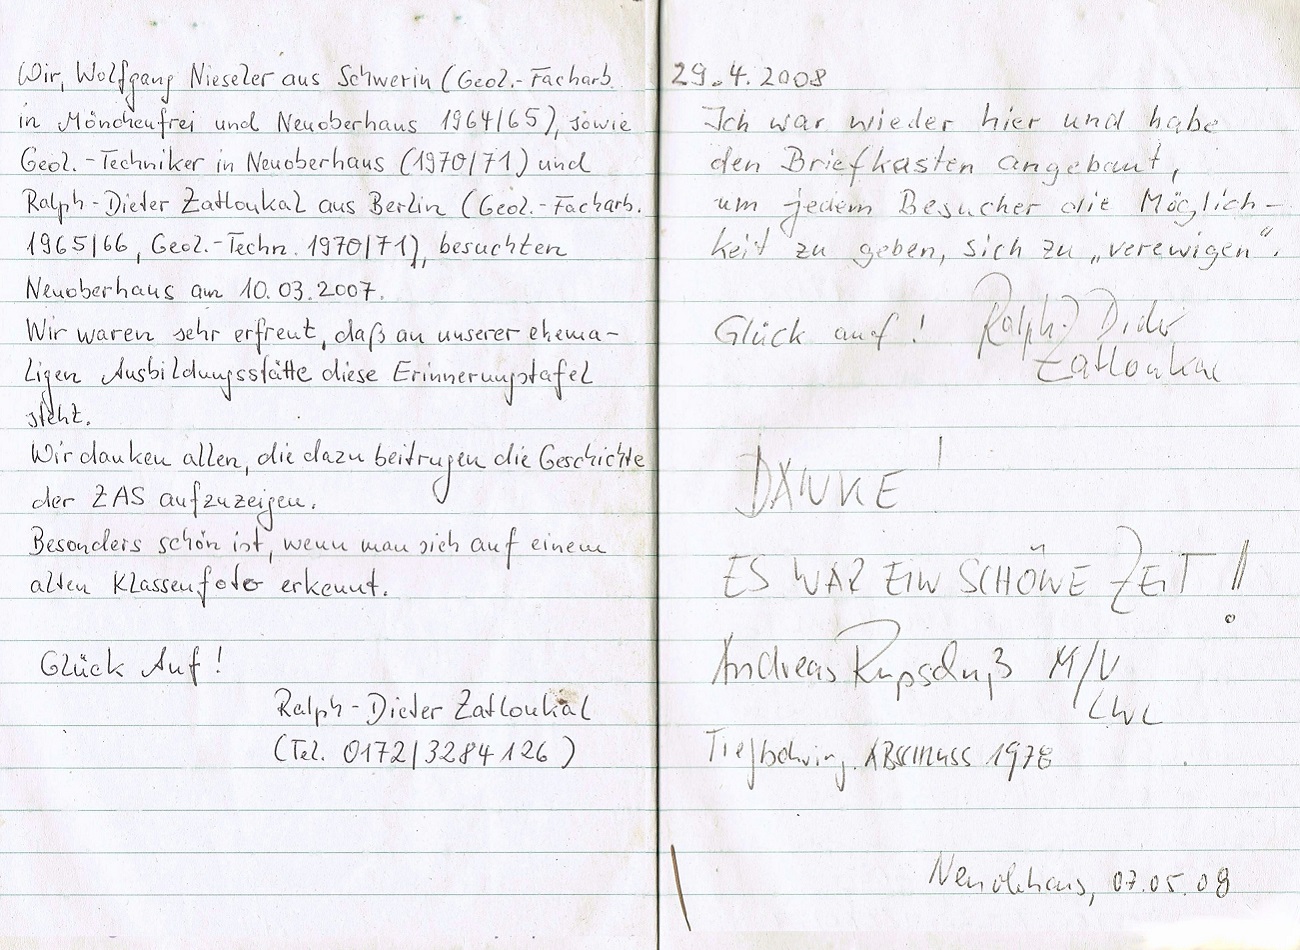 Wir, Wolfgang Nieseler aus Schwerin (Geol.-Facharb.
in Mönchenfrei und Neuoberhaus 1964/65), sowie
Geol.-Techniker in Neuoberhaus (1970/71) und
Ralph-Dieter Zatloukal aus Berlin (Geol.-Facharb.
1965/66, Geol.-Techn. 1970/71), besuchten
Neuoberhaus am 10.03.2007.
Wir waren sehr erfreut, daß an unserer ehema-
ligen Ausbildungsstätte diese Erinnerungstafel
steht.
Wir danken allen, die dazu beitrugen die Geschichte
der ZAS aufzuzeigen.
Besonders schön ist, wenn man sich auf einem
alten Klassenfoto erkennt.
Glück Auf!
Ralph-Dieter Zatloukal
(Tel. 0172/3284126)
29.4.2008
Ich war wieder hier und habe
den Briefkasten angebaut,
um jedem Besucher die Möglich-
keit zu geben, sich zu „verewigen“.
Glück auf! Ralph-Dieter
Zatloukal
DANKE!
ES WAR EIN SCHÖNE ZEIT!!
Andreas M/V
LWL
Tiefbohring. ABSCHLUSS 1978
Neuoberhaus, 07.05.08